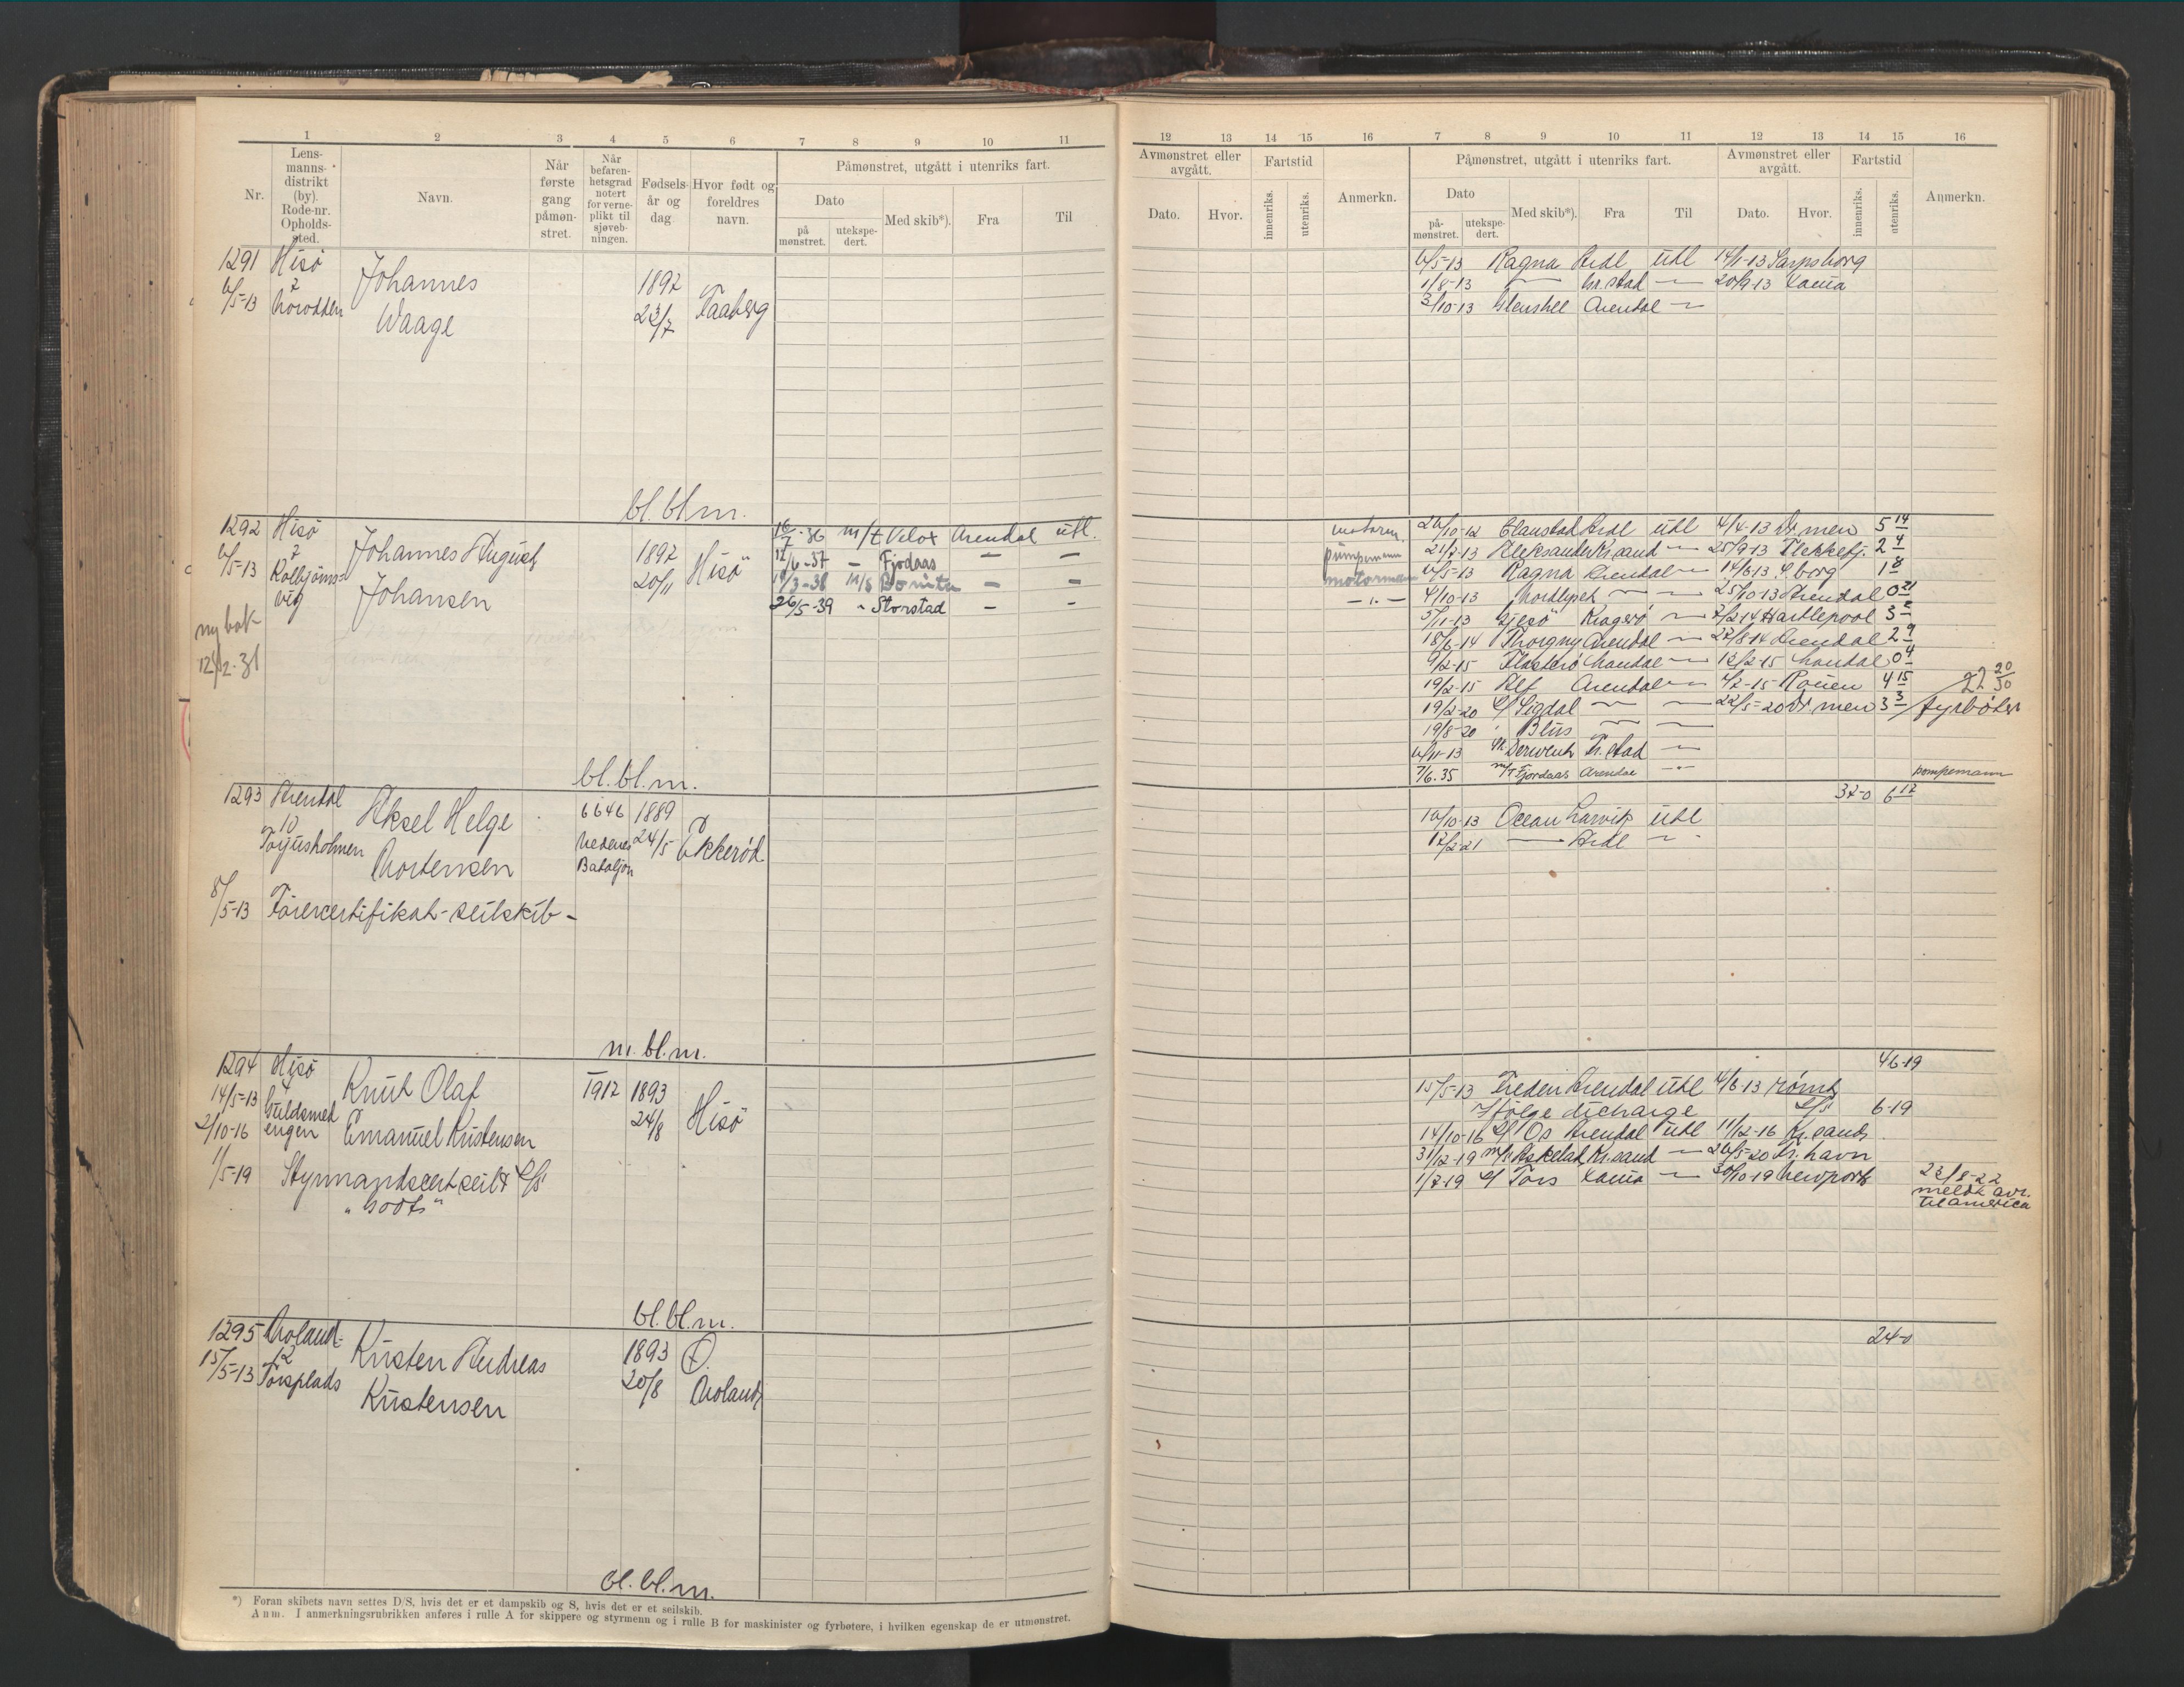 1 2 3 4 5 6 7 8 9 10 11
Nr.
Lens-
manns-
distrikt
(by).
Rode-nr.
Opholds-
sted.
Navn.
Når
første
gang
påmøn-
stret.
Når
befaren-
hetsgrad
notert
for verne-
plikt til
sjøveb-
ningen.
Fødsels-
år og
dag
Hvor født og
foreldres
navn.
Påmønstret, utgått i utenriks fart.
Dato
på
mønstret.
utekspe-
dert.
Med skib*).
Fra
Til
1291 Hisö
6/5-13
7
Johannes
Waage
1892
23/7
Faaberg
bl.bl.m.
1292 Hisö
6/5-13
7
Kolbjörns-
vig
Johannes August
Johansen
1892
20/11
Hisö
16/7-36 m/t Velox Arendal utl.
12/6-37 - Fjordaas - -
26/5-39 " Storstad - -
ny bok
12/2-38
bl.bl.m.
1293 Arendal
10
Torjusholmen
Aksel Helge
Mortensen
6646
Nedenes
Bataljon
1889
24/5
8/5-13 Förercertifikat-seilskib-
m.bl.m.
1294 Hisö
14/5-13
4
Guldsmed
engen
2/10-16
Knut Olaf
Emanuel Kristensen
1912 1893
24/8
Hisö
1/5-19 Styrmandscert seil &
bl.bl.m.
1295 Moland
15/5-13
12
Torsplads
Kristen Andreas
Kristensen
1893
20/8
Ö.
Moland
bl.bl.m.
*) Foran skibets navn settes D/S, hvis det er et dampskib og S, hvis det er et seilskib.
Anm. I anmerkningsrubrikken anføres i rulle A for skippere og styrmenn og i rulle B for maskinister og fyrbøtere, i hvilken egenskap de er utmønstret.
12 13 14 15 16 7 8 9 10 11 12 13 14 15 16
Avmønstret eller
avgått.
Fartstid
Dato.
Hvor.
innenriks.
utenriks.
Anmerkn.
Påmønstret, utgått i utenriks fart.
Dato
på-
mønstret.
utekspe-
dert.
Med skib*).
Fra
Til
Avmønstret eller
avgått.
Fartstid
Dato.
Hvor.
innenriks.
utenriks.
Anmerkn.
6/5-13 Ragna Ardl utl 14/6-13 Sarpsborg
1/8-13 — Fr.stad — 20/9-13
3/10-13 Glenshee Arendal —
26/10-12 Ardl utl 4/4-13 Dr.men 5 14
pumpemann 21/7-13 Aleksander Kr.sand — 25/9-13 Flekkefj. 2 4
motormann 6/5-13 Ragna Arendal — 14/6-13 S.borg 1 8
— " — 4/10-13 Nordlyset — — 25/10-13 Arendal 0 21
5/11-13 Kragerö — 7/2-14 Hartlepool 3 2
18/6-14 Thorgny Arendal — 22/8-14 Arendal 2 9
9/2-15 Mandal — 12/2-15 Mandal 0 4
19/2-15 Alf Arendal — 4/7-15 Rouen 4 15
19/2-20 Sigdal — — 22/5-20 Dr.men 3 3 fyrböter
19/8-20 — —
6/11-13 Derwent Fr.stad —
7/6.35 m/T Fjordaas Arendal — pompemann
32-0 6 12
16/10-13 Ocean Larvik utl
12/2-21 — Ardl —
4/6-19
15/5-13 Arendal utl 4/6-13 römt
Ifölge discharge
6-19
14/10-16 Os Arendal utl 11/12-16 Kr.sand
31/12-19 Askelad Kr.sand — 26/5-20
1/7-19 Tors — 30/10-19 Newport
23/8-22
meldt avr.
til america
24-0